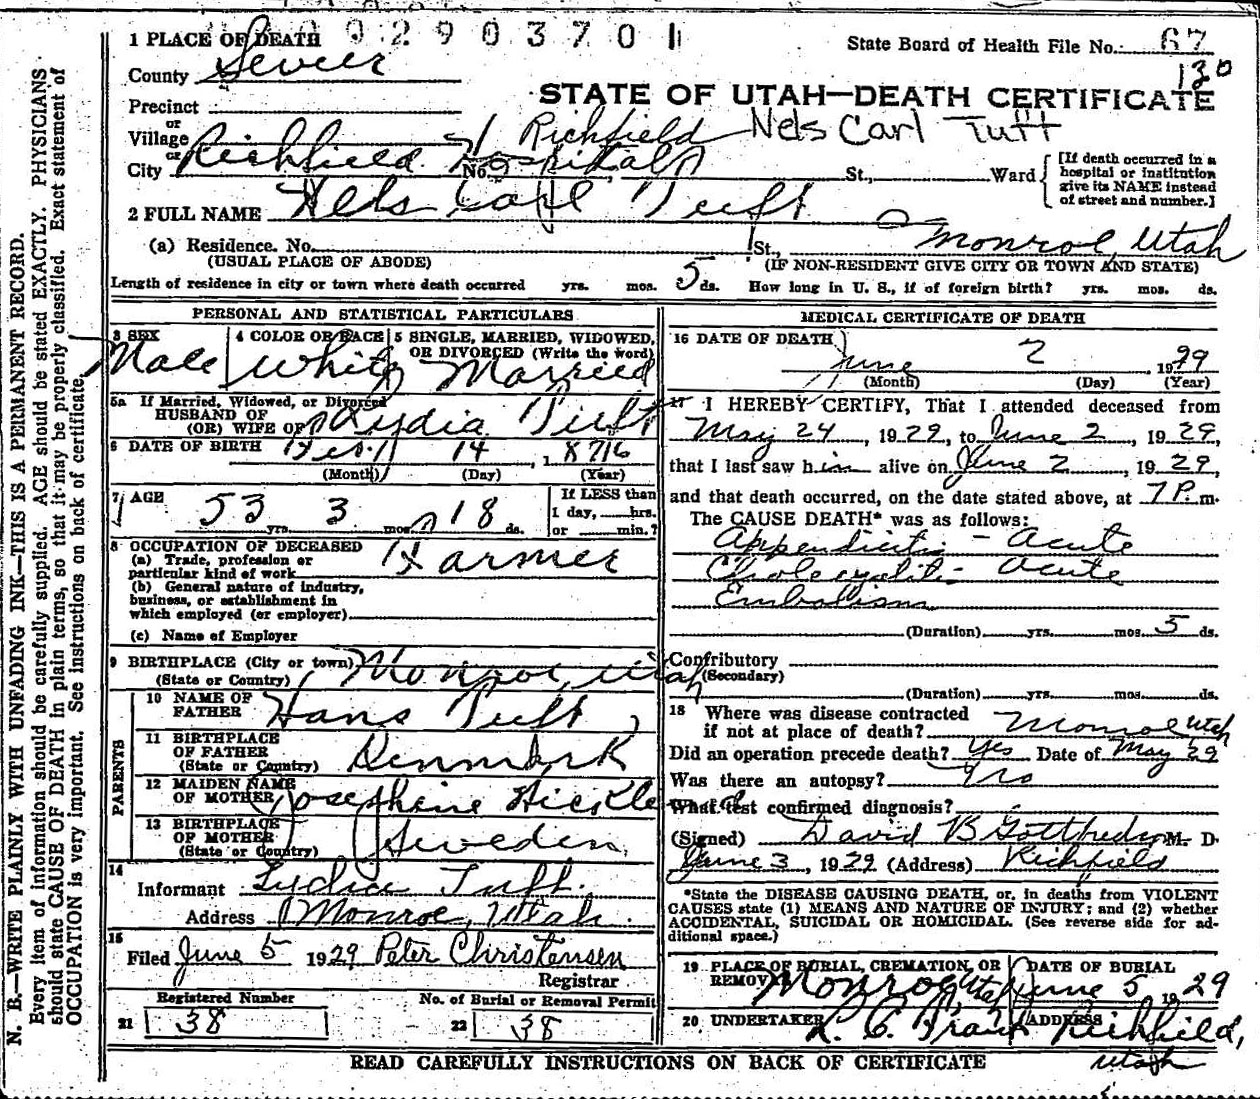 0 9 2 9 0 3 7 0 1
1 PLACE OF DEATH
State Board of Health File No. 67
130
County Sevier
STATE OF UTAH—DEATH CERTIFICATE
Precinct
or
Village
Richfield Nels Carl Tuft
or
City Richfield No. Hospital St., Ward
[If death occurred in a hospital or institution give its NAME instead of street and number.]
2 FULL NAME Nels Carl Tuft
(a) Residence. No. St., Monroe, Utah
(USUAL PLACE OF ABODE) (IF NON-RESIDENT GIVE CITY OR TOWN AND STATE)
Length of residence in city or town where death occurred yrs. mos. 5 ds. How long in U. S., if of foreign birth? yrs. mos. ds.
PERSONAL AND STATISTICAL PARTICULARS
3 SEX Male
4 COLOR OR RACE White
5 SINGLE, MARRIED, WIDOWED, OR DIVORCED (Write the word) Married
5a If Married, Widowed, or Divorced
HUSBAND OF
(OR) WIFE OF Lydia Tuft
6 DATE OF BIRTH Feb. 14, 1876
(Month) (Day) (Year)
7 AGE 53 yrs. 3 mos. 18 ds.
If LESS than 1 day, hrs. or min.?
8 OCCUPATION OF DECEASED
(a) Trade, profession or particular kind of work Farmer
(b) General nature of industry, business, or establishment in which employed (or employer)
(c) Name of Employer
9 BIRTHPLACE (City or town) Monroe, Utah
(State or Country)
PARENTS
10 NAME OF FATHER Hans Tuft
11 BIRTHPLACE OF FATHER Denmark
(State or Country)
12 MAIDEN NAME OF MOTHER Josephine
13 BIRTHPLACE OF MOTHER Sweden
(State or Country)
14
Informant Lydia Tuft.
Address Monroe, Utah.
15
Filed June 5 1929 Peter Christensen
Registrar
Registered Number
21 38
No. of Burial or Removal Permit
22 38
MEDICAL CERTIFICATE OF DEATH
16 DATE OF DEATH
June 2, 1929
(Month) (Day) (Year)
17 I HEREBY CERTIFY, That I attended deceased from
May 24, 1929, to June 2, 1929,
that I last saw him alive on June 2, 1929,
and that death occurred, on the date stated above, at 7 P. m.
The CAUSE DEATH* was as follows:
Appendicitis - Acute
Cholecystitis - Acute
Embolism
(Duration) yrs. mos. 5 ds.
Contributory
(Secondary)
(Duration) yrs. mos. ds.
18 Where was disease contracted
if not at place of death? Monroe Utah
Did an operation precede death? Yes Date of May 29
Was there an autopsy? No
What test confirmed diagnosis?
(Signed) David B Gottfredson M. D.
June 3, 1929 (Address) Richfield
*State the DISEASE CAUSING DEATH, or, in deaths from VIOLENT
CAUSES state (1) MEANS AND NATURE OF INJURY; and (2) whether
ACCIDENTAL, SUICIDAL OR HOMICIDAL. (See reverse side for ad-
ditional space.)
19 PLACE OF BURIAL, CREMATION, OR REMOVAL Monroe Utah
DATE OF BURIAL June 5 1929
20 UNDERTAKER
ADDRESS Richfield, Utah
READ CAREFULLY INSTRUCTIONS ON BACK OF CERTIFICATE
N. B.—WRITE PLAINLY WITH UNFADING INK—THIS IS A PERMANENT RECORD.
Every item of information should be carefully supplied. AGE should be stated EXACTLY. PHYSICIANS
should state CAUSE OF DEATH in plain terms, so that it may be properly classified. Exact statement of
OCCUPATION is very important. See instructions on back of certificate.